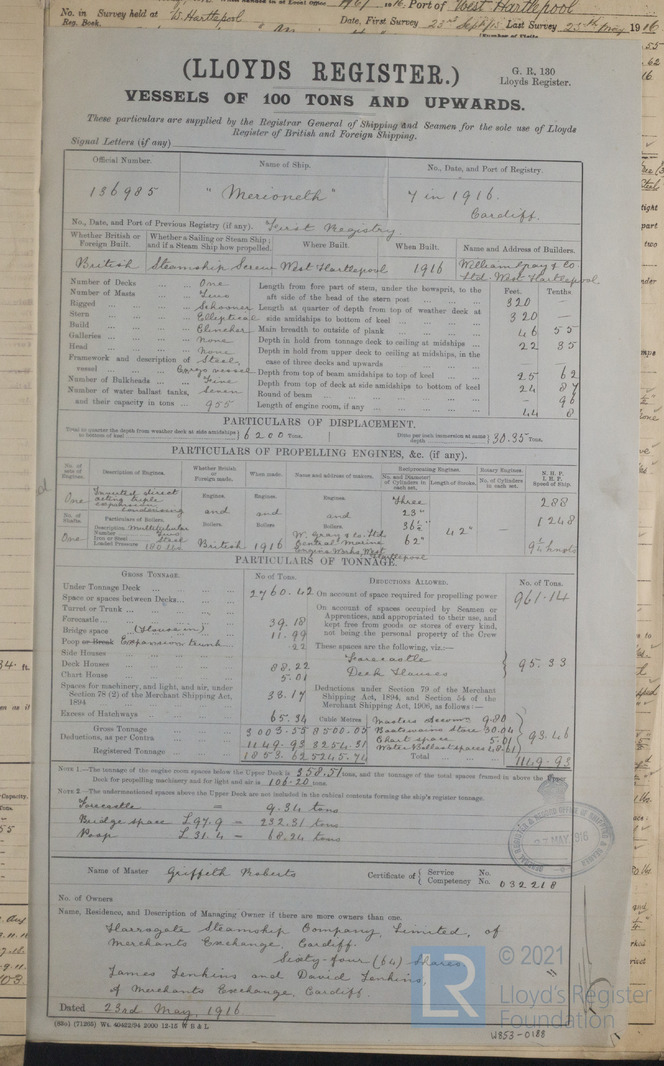 No. in Survey held at W. Hartlepool Date, First Survey 23rd Sept/15 Last Survey 25th May 1916
Reg. Book.
Port of West Hartlepool
(LLOYDS REGISTER.)
G. R. 130
Lloyds Register.
VESSELS OF 100 TONS AND UPWARDS.
These particulars are supplied by the Registrar General of Shipping and Seamen for the sole use of Lloyds
Register of British and Foreign Shipping.
Signal Letters (if any)
Official Number. Name of Ship. No., Date, and Port of Registry.
136985 "Merioneth" 7 in 1916.
Cardiff.
No., Date, and Port of Previous Registry (if any). First Registry.
Whether British or Foreign Built. Whether a Sailing or Steam Ship; and if a Steam Ship how propelled. Where Built. When Built. Name and Address of Builders.
British Steamship Screw West Hartlepool 1916 William Gray & Co Ltd West Hartlepool
Number of Decks ... One
Number of Masts ... Two
Rigged ... Schooner
Stern ... Elliptical
Build ... Clincher
Galleries ... None
Head ... None
Framework and description of vessel ... Steel Cargo vessel
Number of Bulkheads ... Five
Number of water ballast tanks, Seven
and their capacity in tons ... 955
Feet. Tenths
Length from fore part of stem, under the bowsprit, to the aft side of the head of the stern post 320
Length at quarter of depth from top of weather deck at side amidships to bottom of keel 320 —
Main breadth to outside of plank 46 55
Depth in hold from tonnage deck to ceiling at midships 22 85
Depth in hold from upper deck to ceiling at midships, in the case of three decks and upwards — —
Depth from top of beam amidships to top of keel 25 62
Depth from top of deck at side amidships to bottom of keel 24 87
Round of beam — 96
Length of engine room, if any 44 0
PARTICULARS OF DISPLACEMENT.
Total to quarter the depth from weather deck at side amidships to bottom of keel 6200 Tons. Ditto per inch immersion at same depth 30.35 Tons.
PARTICULARS OF PROPELLING ENGINES, &c. (if any).
No. of sets of Engines. Description of Engines. Whether British or Foreign made. When made. Name and address of makers. Reciprocating Engines. Rotary Engines. N. H. P. I. H. P. Speed of Ship.
No. and Diameter of Cylinders in each set. Length of Stroke. No. of Cylinders in each set.
One Inverted direct acting triple expansion condensing Engines. Engines. Engines. Three 288
and and and 23" 1248
No. of Shafts. Particulars of Boilers. Boilers Boilers Boilers 36½" 42" —
One Description Multitubular Number Two Iron or Steel Steel Loaded Pressure 180 lbs British 1916 W. Gray & Co. Ltd Central Marine Engine Works, West Hartlepool 62" 9½ knots
PARTICULARS OF TONNAGE.
GROSS TONNAGE. No. of Tons. DEDUCTIONS ALLOWED. No. of Tons.
Under Tonnage Deck ... 2760.42
Space or spaces between Decks...
Turret or Trunk ...
Forecastle ...
Bridge space (House in) 39.18
Poop or Break Expansion trunk 11.99
Side Houses .22
Deck Houses 88.22
Chart House 5.01
Spaces for machinery, and light, and air, under Section 78 (2) of the Merchant Shipping Act, 1894 33.17
Excess of Hatchways 65.34
Cubic Metres
Gross Tonnage 3003.55 8500.05
Deductions, as per Contra 1149.93 3254.31
Registered Tonnage 1853.62 5245.74
On account of space required for propelling power 961.14
On account of spaces occupied by Seamen or Apprentices, and appropriated to their use, and kept free from goods or stores of every kind, not being the personal property of the Crew
These spaces are the following, viz.:—
Forecastle
Deck Houses 95.33
Deductions under Section 79 of the Merchant Shipping Act, 1894, and Section 54 of the Merchant Shipping Act, 1906, as follows:—
Masters Accom. 9.80
Boatswains store 30.04
Chart space 5.01
Water Ballast spaces 48.61
93.46
Total 1149.93
NOTE 1.—The tonnage of the engine room spaces below the Upper Deck is 358.51 tons, and the tonnage of the total spaces framed in above the Upper Deck for propelling machinery and for light and air is 106.20 tons.
NOTE 2.—The undermentioned spaces above the Upper Deck are not included in the cubical contents forming the ship's register tonnage.
Forecastle = 9.34 tons
Bridge space L 97.9 = 232.31 tons
Poop L 31.4 = 68.24 tons
MAY 1916
Name of Master Griffith Roberts Certificate of Service No.
Competency No. 032218
No. of Owners
Name, Residence, and Description of Managing Owner if there are more owners than one.
Harrogate Steamship Company, Limited, of
Merchants Exchange, Cardiff.
Sixty-four (64) Shares
James Jenkins and David Jenkins,
of Merchants Exchange, Cardiff
Dated 23rd May, 1916
(85c) (71265) Wt. 40422/94 2000 12-15 W B & L
LR © 2021
Lloyd's Register
Foundation
W853-0188